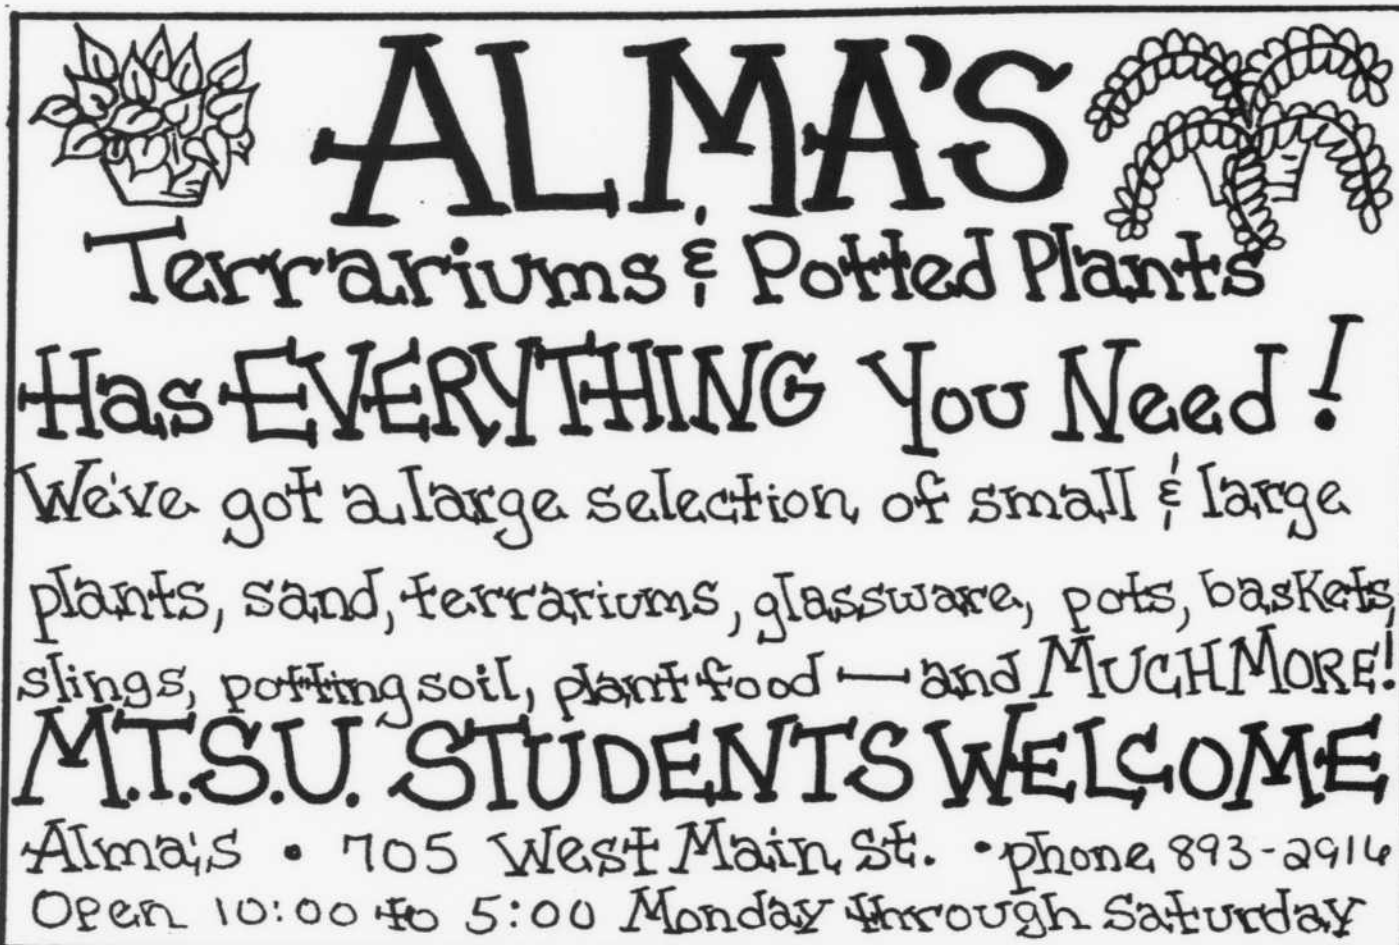 ALMA'S
Terrariums & Potted Plants
Has EVERYTHING You Need!
We've got a large selection of small & large
plants, sand, terrariums, glassware, pots, baskets,
slings, potting soil, plant food — and MUCH MORE!
M.T.S.U. STUDENTS WELCOME
Alma's • 705 West Main St. • phone 893-2916
Open 10:00 to 5:00 Monday through Saturday